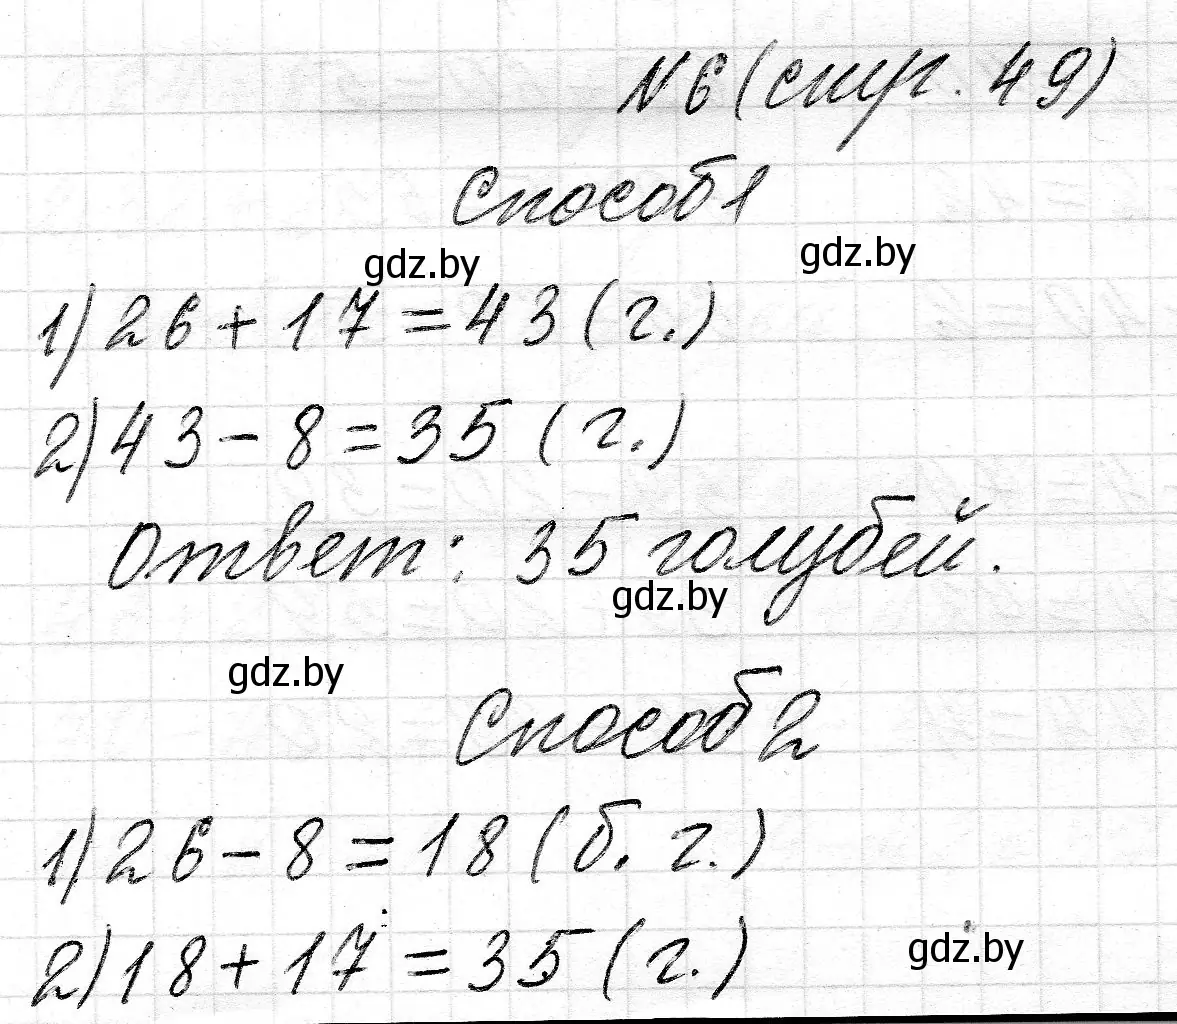 N 6 (стр. 49)
Способ 1
gdz.by gdz.by
1) 26 + 17 = 43 (г.)
2) 43 - 8 = 35 (г.)
Ответ: 35 голубей.
gdz.by
gdz.by
Способ 2
1) 26 - 8 = 18 (б. г.)
2) 18 + 17 = 35 (г.)
gdz.by